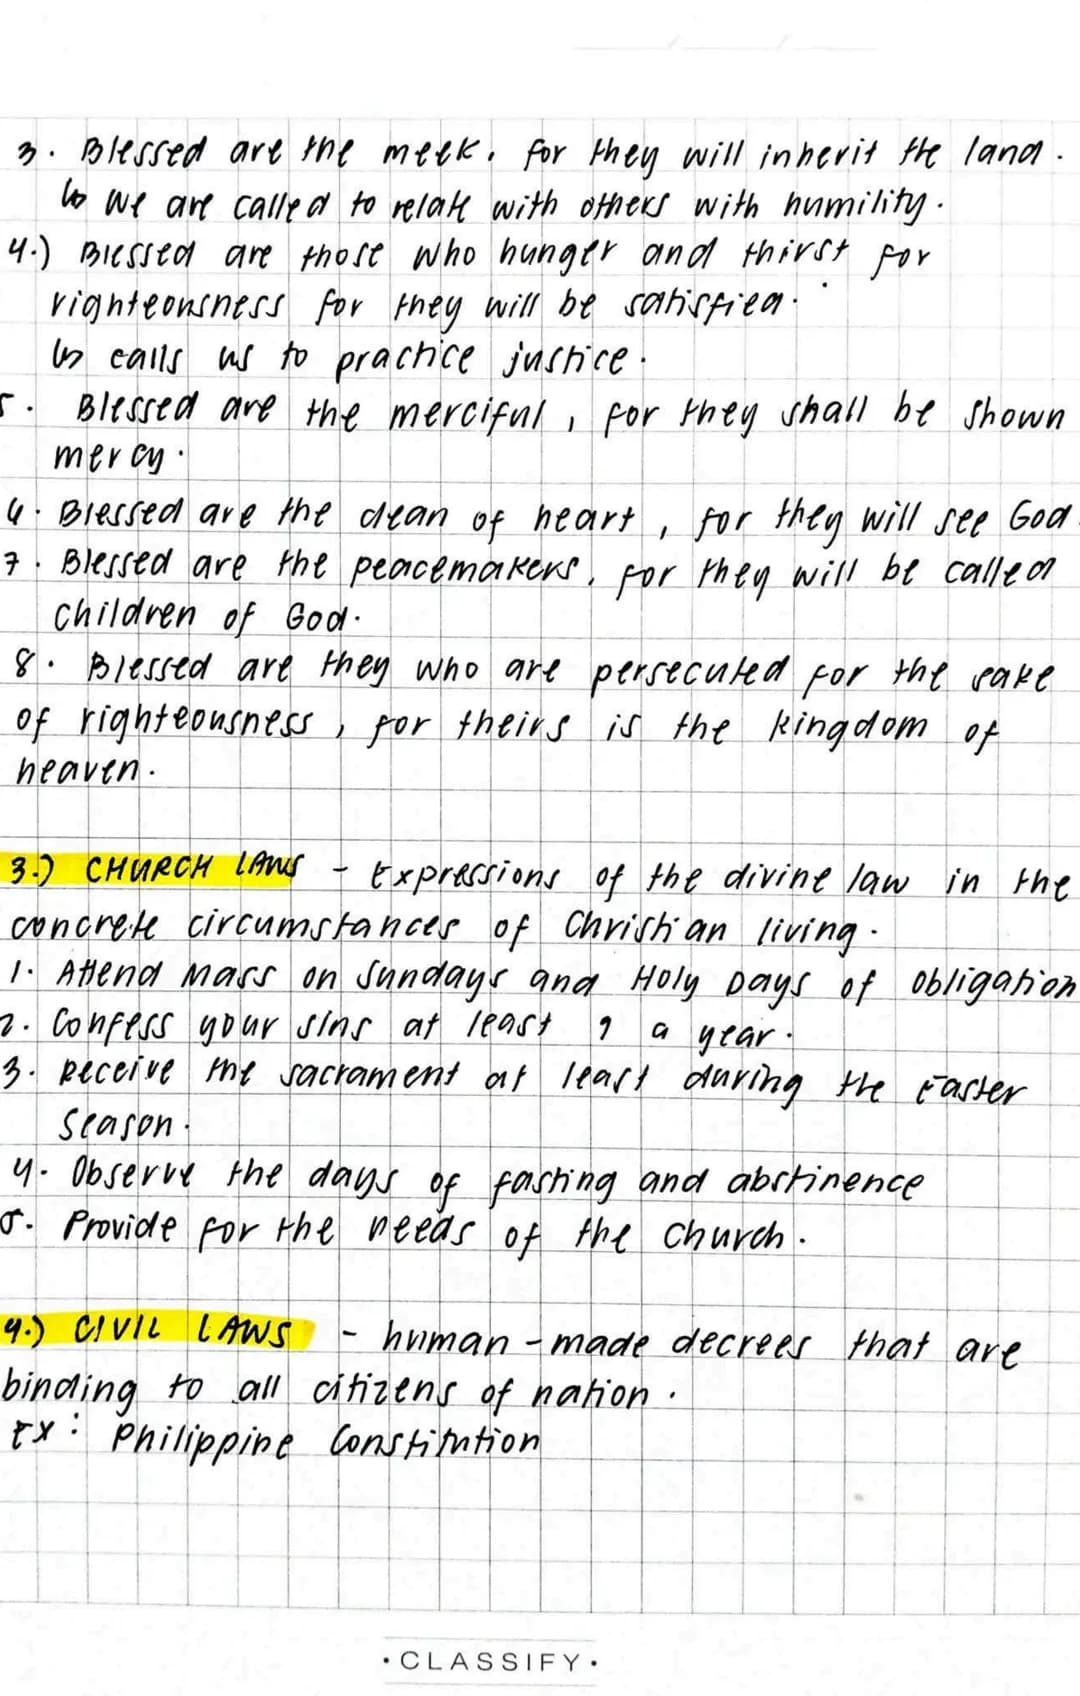 3. Blessed are the meek, for they will inherit the land.
↳ We are called to relate with others with humility.
4.) Blessed are those who hunger and thirst for
righteousness for they will be satisfied.
↳ calls us to practice justice.
5. Blessed are the merciful, for they shall be shown
mercy.
6. Blessed are the clean of heart, for they will see God.
7. Blessed are the peacemakers, for they will be called
children of God.
8. Blessed are they who are persecuted for the sake
of righteousness, for theirs is the kingdom of
heaven.
3.) CHURCH LAWS - Expressions of the divine law in the
concrete circumstances of Christian living.
1. Attend Mass on Sundays and Holy Days of Obligation
2. Confess your sins at least 1 a year.
3. Receive the sacrament at least during the Easter
season.
4. Observe the days of fasting and abstinence
5. Provide for the needs of the Church.
4.) CIVIL LAWS - human-made decrees that are
binding to all citizens of nation.
Ex: Philippine Constitution
• CLASSIFY •